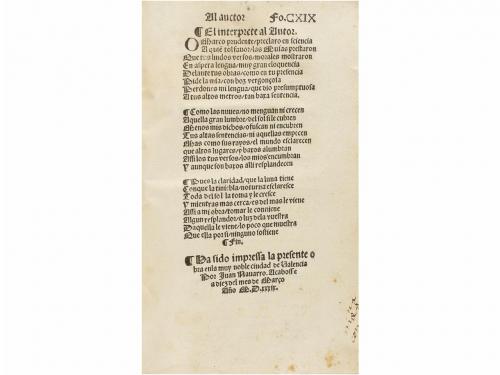 Al auctor Fo.CXIX
¶ El interprete al Autor.
O Marco prudente/preclaro en sciencia
A quiẽ tol fauor/las Musas prestaron
Que tus lindos versos/morales mostraron
En aspera lengua/muy gran eloquencia
Delante tus obras/como en tu presencia
Pide la mia/con boz vergonçosa
Perdones mi lengua/que osò presumptuosa
A tus altos metros/tan baxa sentencia.
¶ Como las nuues/no menguan ni crecen
Aquella gran lumbre/del sol si le cubren
Menos mis dichos/ofuscan ni encubren
Tus altas sentencias/ni aquellas empecen
Mas como sus rayos/el mundo esclarecen
que altos lugares/y baxos alumbran
Assi los tus versos/los mios encumbran
Y aunque son baxos alli resplandecen
¶ Pues la claridad/que la luna tiene
Con que la tiniebla/noturna esclaresce
Toda del sol la toma y le cresce
Y mientras mas cerca/es del mas le viene
Assi a mi obra/tomar le conuiene
Algun resplandor/o luz dela vuestra
Daquella le viene/lo poco que muestra
Que ella por si/ninguno sostiene
¶ Fin.
¶ Ha sido impressa la presente o
bra enla muy noble ciudad de Valencia
Por Juan Nauarro. Acabosse
a diez del mes de Março
Año M.D.xxxix.